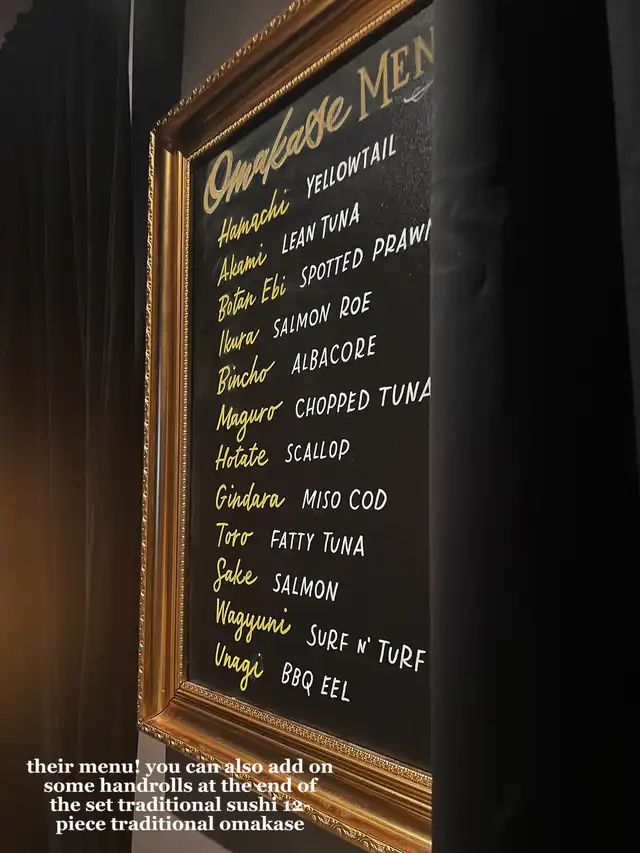 Omakase MEN
Hamachi YELLOWTAIL
Akami LEAN TUNA
Botan Ebi SPOTTED PRAWN
Ikura SALMON ROE
Bincho ALBACORE
Maguro CHOPPED TUNA
Hotate SCALLOP
Gindara MISO COD
Toro FATTY TUNA
Sake SALMON
Wagyuni SURF N' TURF
Unagi BBQ EEL
their menu! you can also add on
some handrolls at the end of
the set traditional sushi 12-
piece traditional omakase